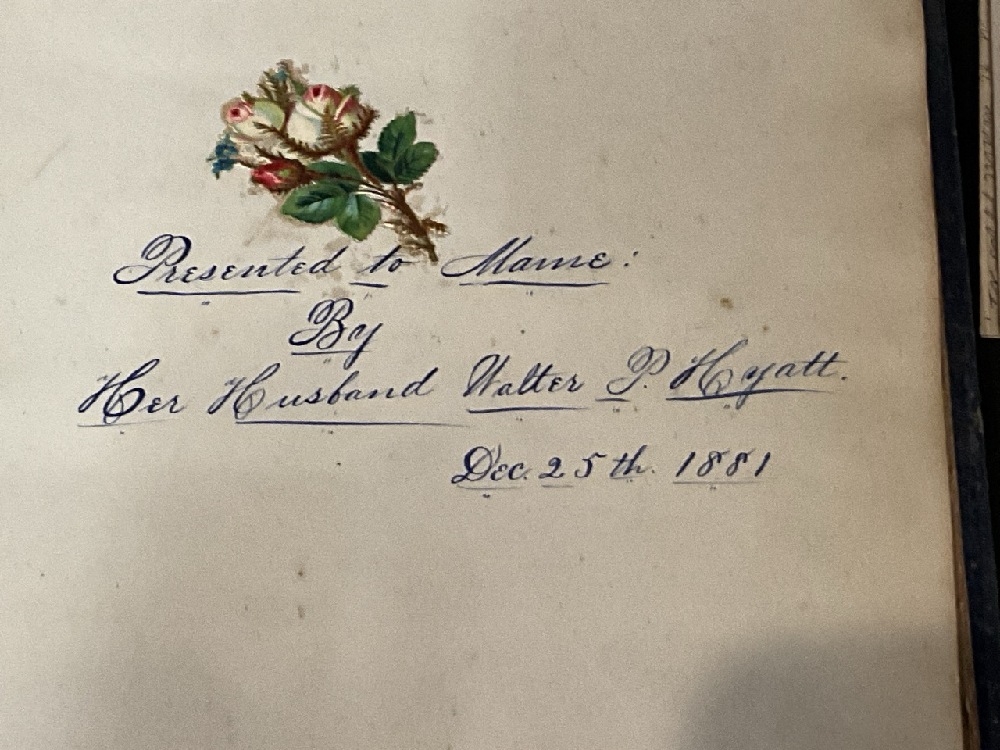 Presented to Mame:
By
Her Husband Walter P. Hyatt.
Dec. 25th. 1881